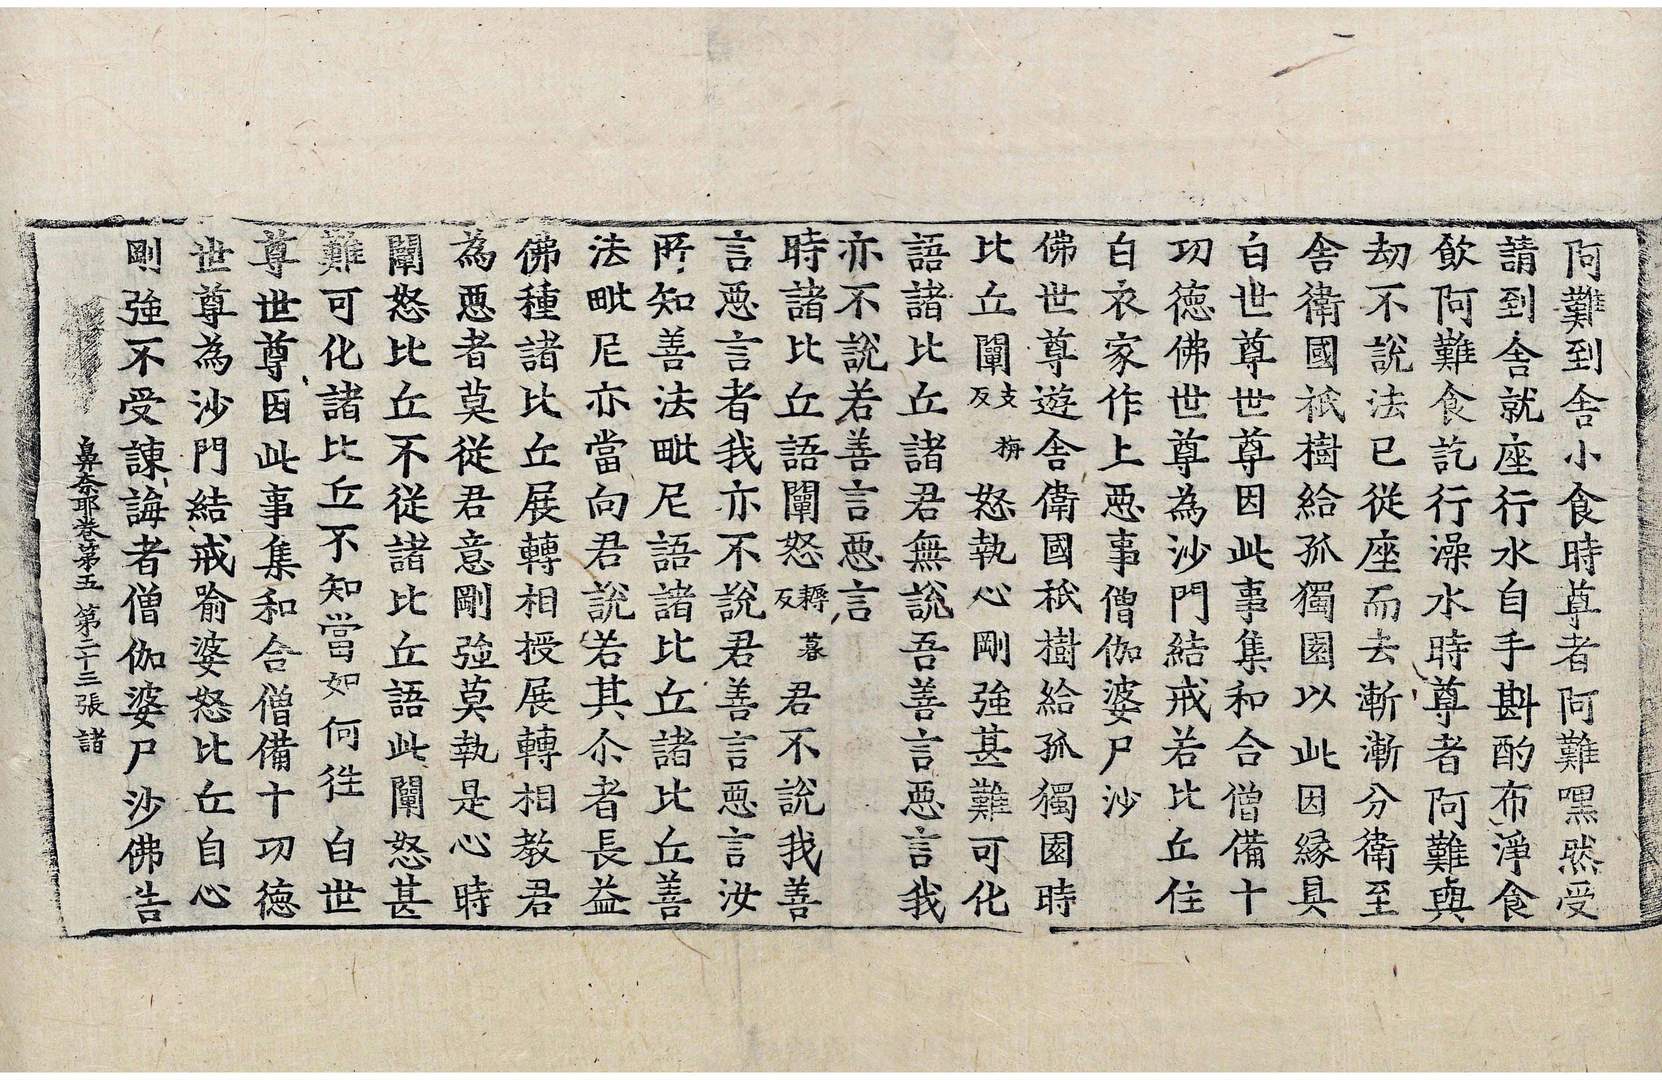 阿難到舍小食時尊者阿難嘿然受
請到舍就座行水自手斟酌布淨食
飲阿難食訖行澡水時尊者阿難與
劫不說法已從座而去漸漸分衛至
舍衛國祇樹給孤獨園以此因縁具
白世尊世尊因此事集和合僧備十
功德佛世尊為沙門結戒若比丘住
白衣家作上惡事僧伽婆尸沙
佛世尊遊舍衛國祇樹給孤獨園時
比丘闡支反栴怒執心剛強甚難可化
語諸比丘諸君無說吾善言惡言我
亦不說若善言惡言
時諸比丘語闡怒耨反暮君不說我善
言惡言者我亦不說君善言惡言汝
所知善法毗尼語諸比丘諸比丘善
法毗尼亦當向君說若其尒者長益
佛種諸比丘展轉相授展轉相教君
為惡者莫從君意剛強莫執是心時
闡怒比丘不從諸比丘語此闡怒甚
難可化諸比丘不知當如何徃白世
尊世尊因此事集和合僧備十功德
世尊為沙門結戒喻婆怒比丘自心
剛強不受諫誨者僧伽婆尸沙佛告
鼻奈耶卷第五 第二十三張 諸